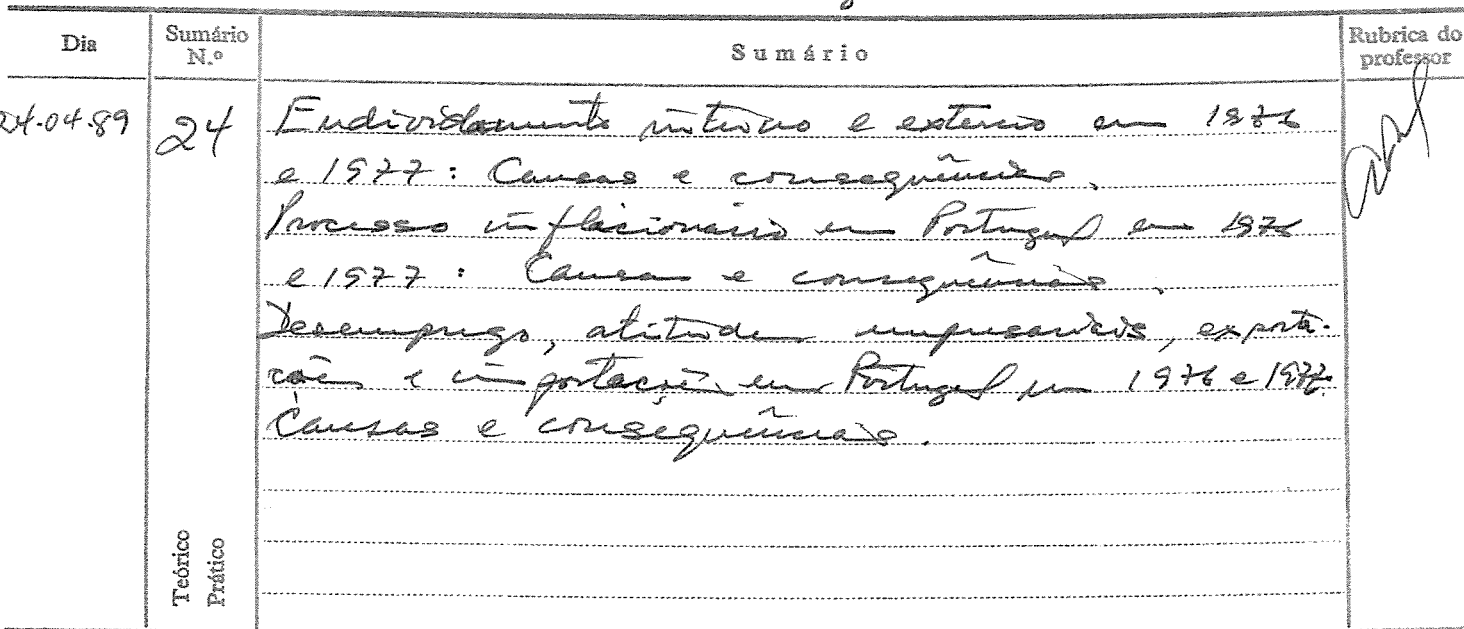 Dia
Sumário N.º
Sumário
Rubrica do professor
24.04.89
24
Endividamento interno e externo em 1976
e 1977: Causas e consequências.
Processo inflacionário em Portugal em 1976
e 1977: Causas e consequências.
Desemprego, atitudes empresariais, exporta-
ções e importações em Portugal em 1976 e 1977.
Causas e consequências.
Teórico
Prático